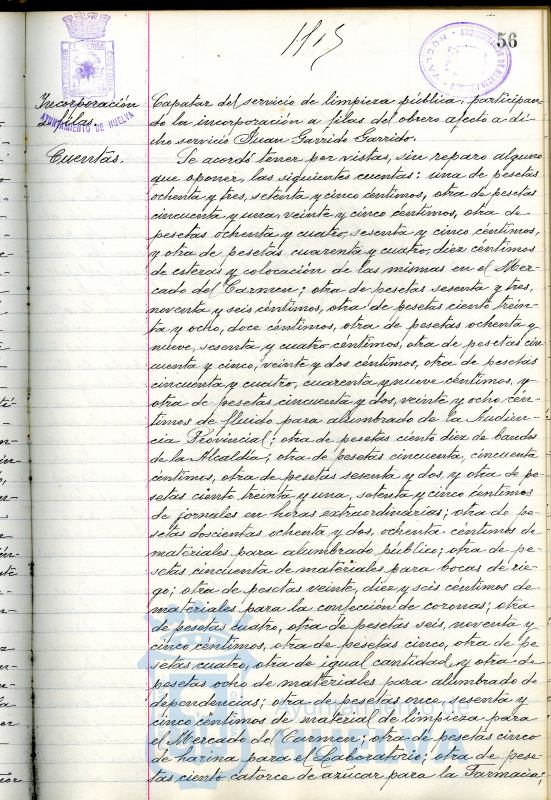 1915
56
AYUNTAMIENTO DE HUELVA
Incorporación
á filas.
Cuentas.
Capataz del servicio de limpieza pública, participan-
do la incorporación a filas del obrero afecto a di-
cho servicio Juan Garrido Garrido.
Se acordó tener por vistas, sin reparo alguno
que oponer, las siguientes cuentas: una de pesetas
ochenta y tres, setenta y cinco céntimos, otra de pesetas
cincuenta y una, veinte y cinco céntimos, otra de
pesetas ochenta y cuatro, sesenta y cinco céntimos,
y otra de pesetas cuarenta y cuatro, diez céntimos
de esteras y colocación de las mismas en el Mer-
cado del Carmen; otra de pesetas sesenta y tres,
noventa y seis céntimos, otra de pesetas ciento trein-
ta y ocho, doce céntimos, otra de pesetas ochenta y
nueve, sesenta y cuatro céntimos, otra de pesetas cin-
cuenta y cinco, veinte y dos céntimos, otra de pesetas
cincuenta y cuatro, cuarenta y nueve céntimos, y
otra de pesetas cincuenta y dos, veinte y ocho cén-
timos de fluido para alumbrado de la Audien-
cia Provincial; otra de pesetas ciento diez de bandos
de la Alcaldía; otra de pesetas cincuenta, cincuenta
céntimos, otra de pesetas sesenta y dos, y otra de pe-
setas ciento treinta y una, setenta y cinco céntimos
de jornales en horas extraordinarias; otra de pe-
setas doscientas ochenta y dos, ochenta céntimos de
materiales para alumbrado público; otra de pe-
setas cincuenta de materiales para bocas de rie-
go; otra de pesetas veinte, diez y seis céntimos de
materiales para la confección de coronas; otra
de pesetas cuatro, otra de pesetas seis, noventa y
cinco céntimos, otra de pesetas cinco, otra de pe-
setas cuatro, otra de igual cantidad, y otra de
pesetas ocho de materiales para alumbrado de
dependencias; otra de pesetas once, sesenta y
cinco céntimos de material de limpieza para
el Mercado del Carmen; otra de pesetas cinco
de harina para el Laboratorio; otra de pese-
tas ciento catorce de azúcar para la Farmacia;
Ayuntamiento de
HUELVA